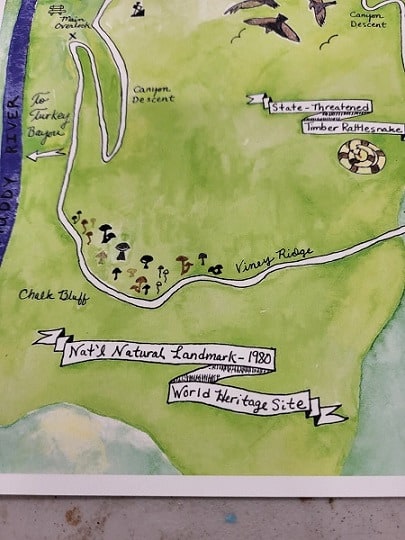 Main
Overlook
X
Canyon
Descent
Canyon
Descent
To
Turkey
Bayou
UDDY RIVER
State-Threatened
Timber Rattlesnake
Viney Ridge
Chalk Bluff
Nat'l Natural Landmark-1980
World Heritage Site